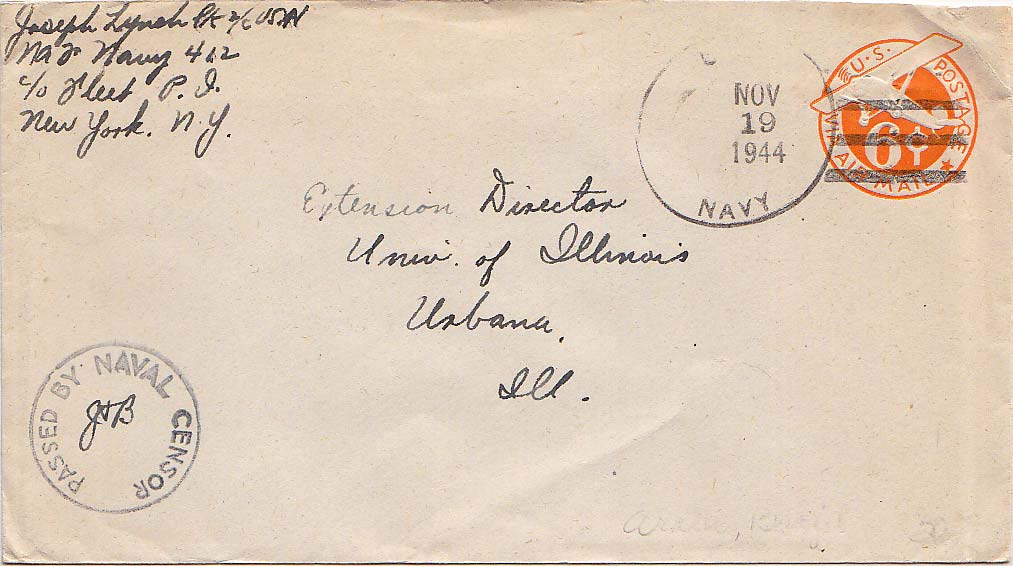 Joseph Lynch 2/c USN
Navy 412
c/o Fleet P. O.
New York. N.Y.
NOV
19
1944
NAVY
U.S. POSTAGE
6¢
VIA AIR MAIL
Extension Director
Univ. of Illinois
Urbana,
Ill.
PASSED BY NAVAL CENSOR